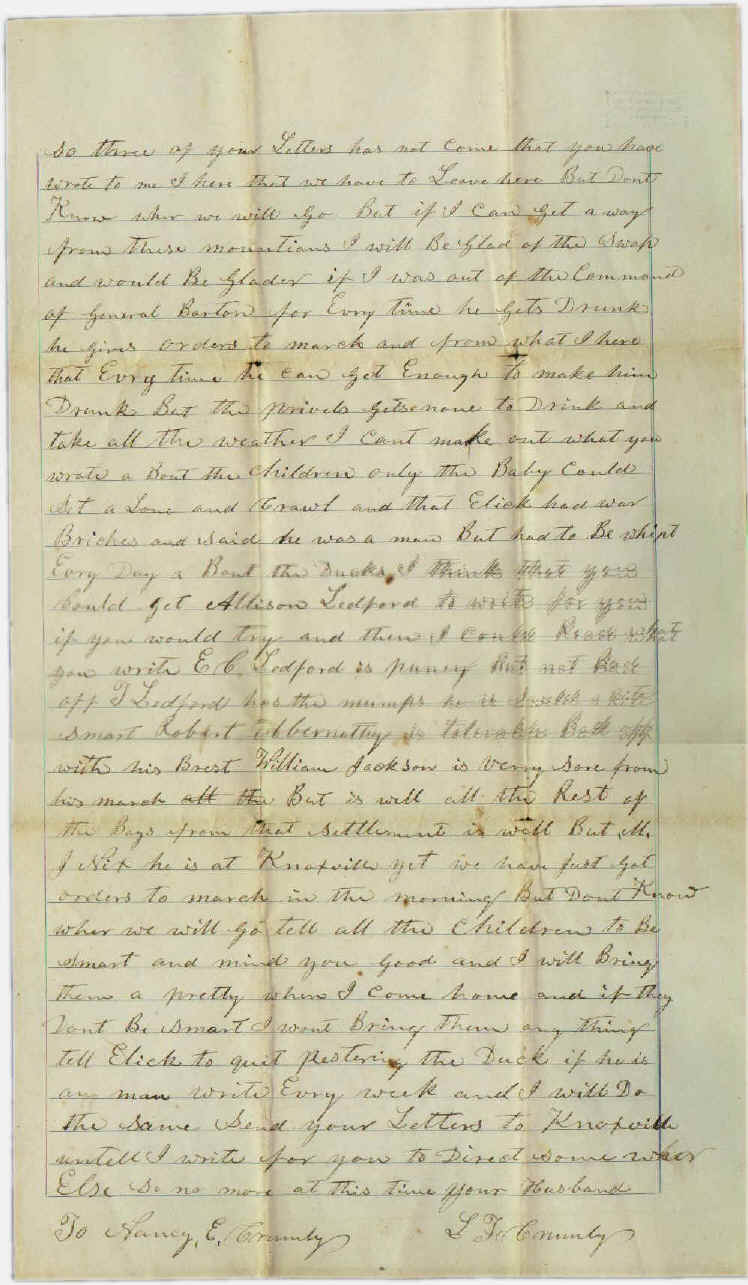 So three of your Letters has not come that you have
wrote to me I here that we have to Leave here But Dont
Know wher we will Go But if I Can Get a way
from these mountians I will Be Glad of the Swap
and would Be Glader if I was out of the Command
of General Barton for Evry time he Gets Drunk
he gives orders to march and from what I here
that Evry time he can Get Enough to make him
Drunk But the privets gets none to Drink and
take all the weather I cant make out what you
wrote a Bout the Children only the Baby Could
Set a Lone and Crawl and that Elick had war
Briches and said he was a man But had to Be whipt
Evry Day a Bout the Ducks I think that you
Could get Allison Ledford to write for you
if you would try and then I could Read what
you write E C Ledford is puney But not Bad
off T Ledford has the mumps he is
smart Robert Abbernathy is tolerable Bad off
with his Brest William Jackson is verry Sore from
his march all the But is well all the Rest of
the Boys from that Settlement is well But M.
J Nix he is at Knoxville yet we have just Got
orders to march in the morning But Dont Know
wher we will Go tell all the Children to Be
smart and mind you Good and I will Bring
them a pretty when I come home and if they
Dont Be smart I wont Bring them any thing
tell Elick to quit pestering the Duck if he is
any man write Evry week and I will Do
the same Send your Letters to Knoxville
untell I write for you to Direct some wher
Else So no more at this time your Husband
To Nancy, E, Crumly L F Crumly